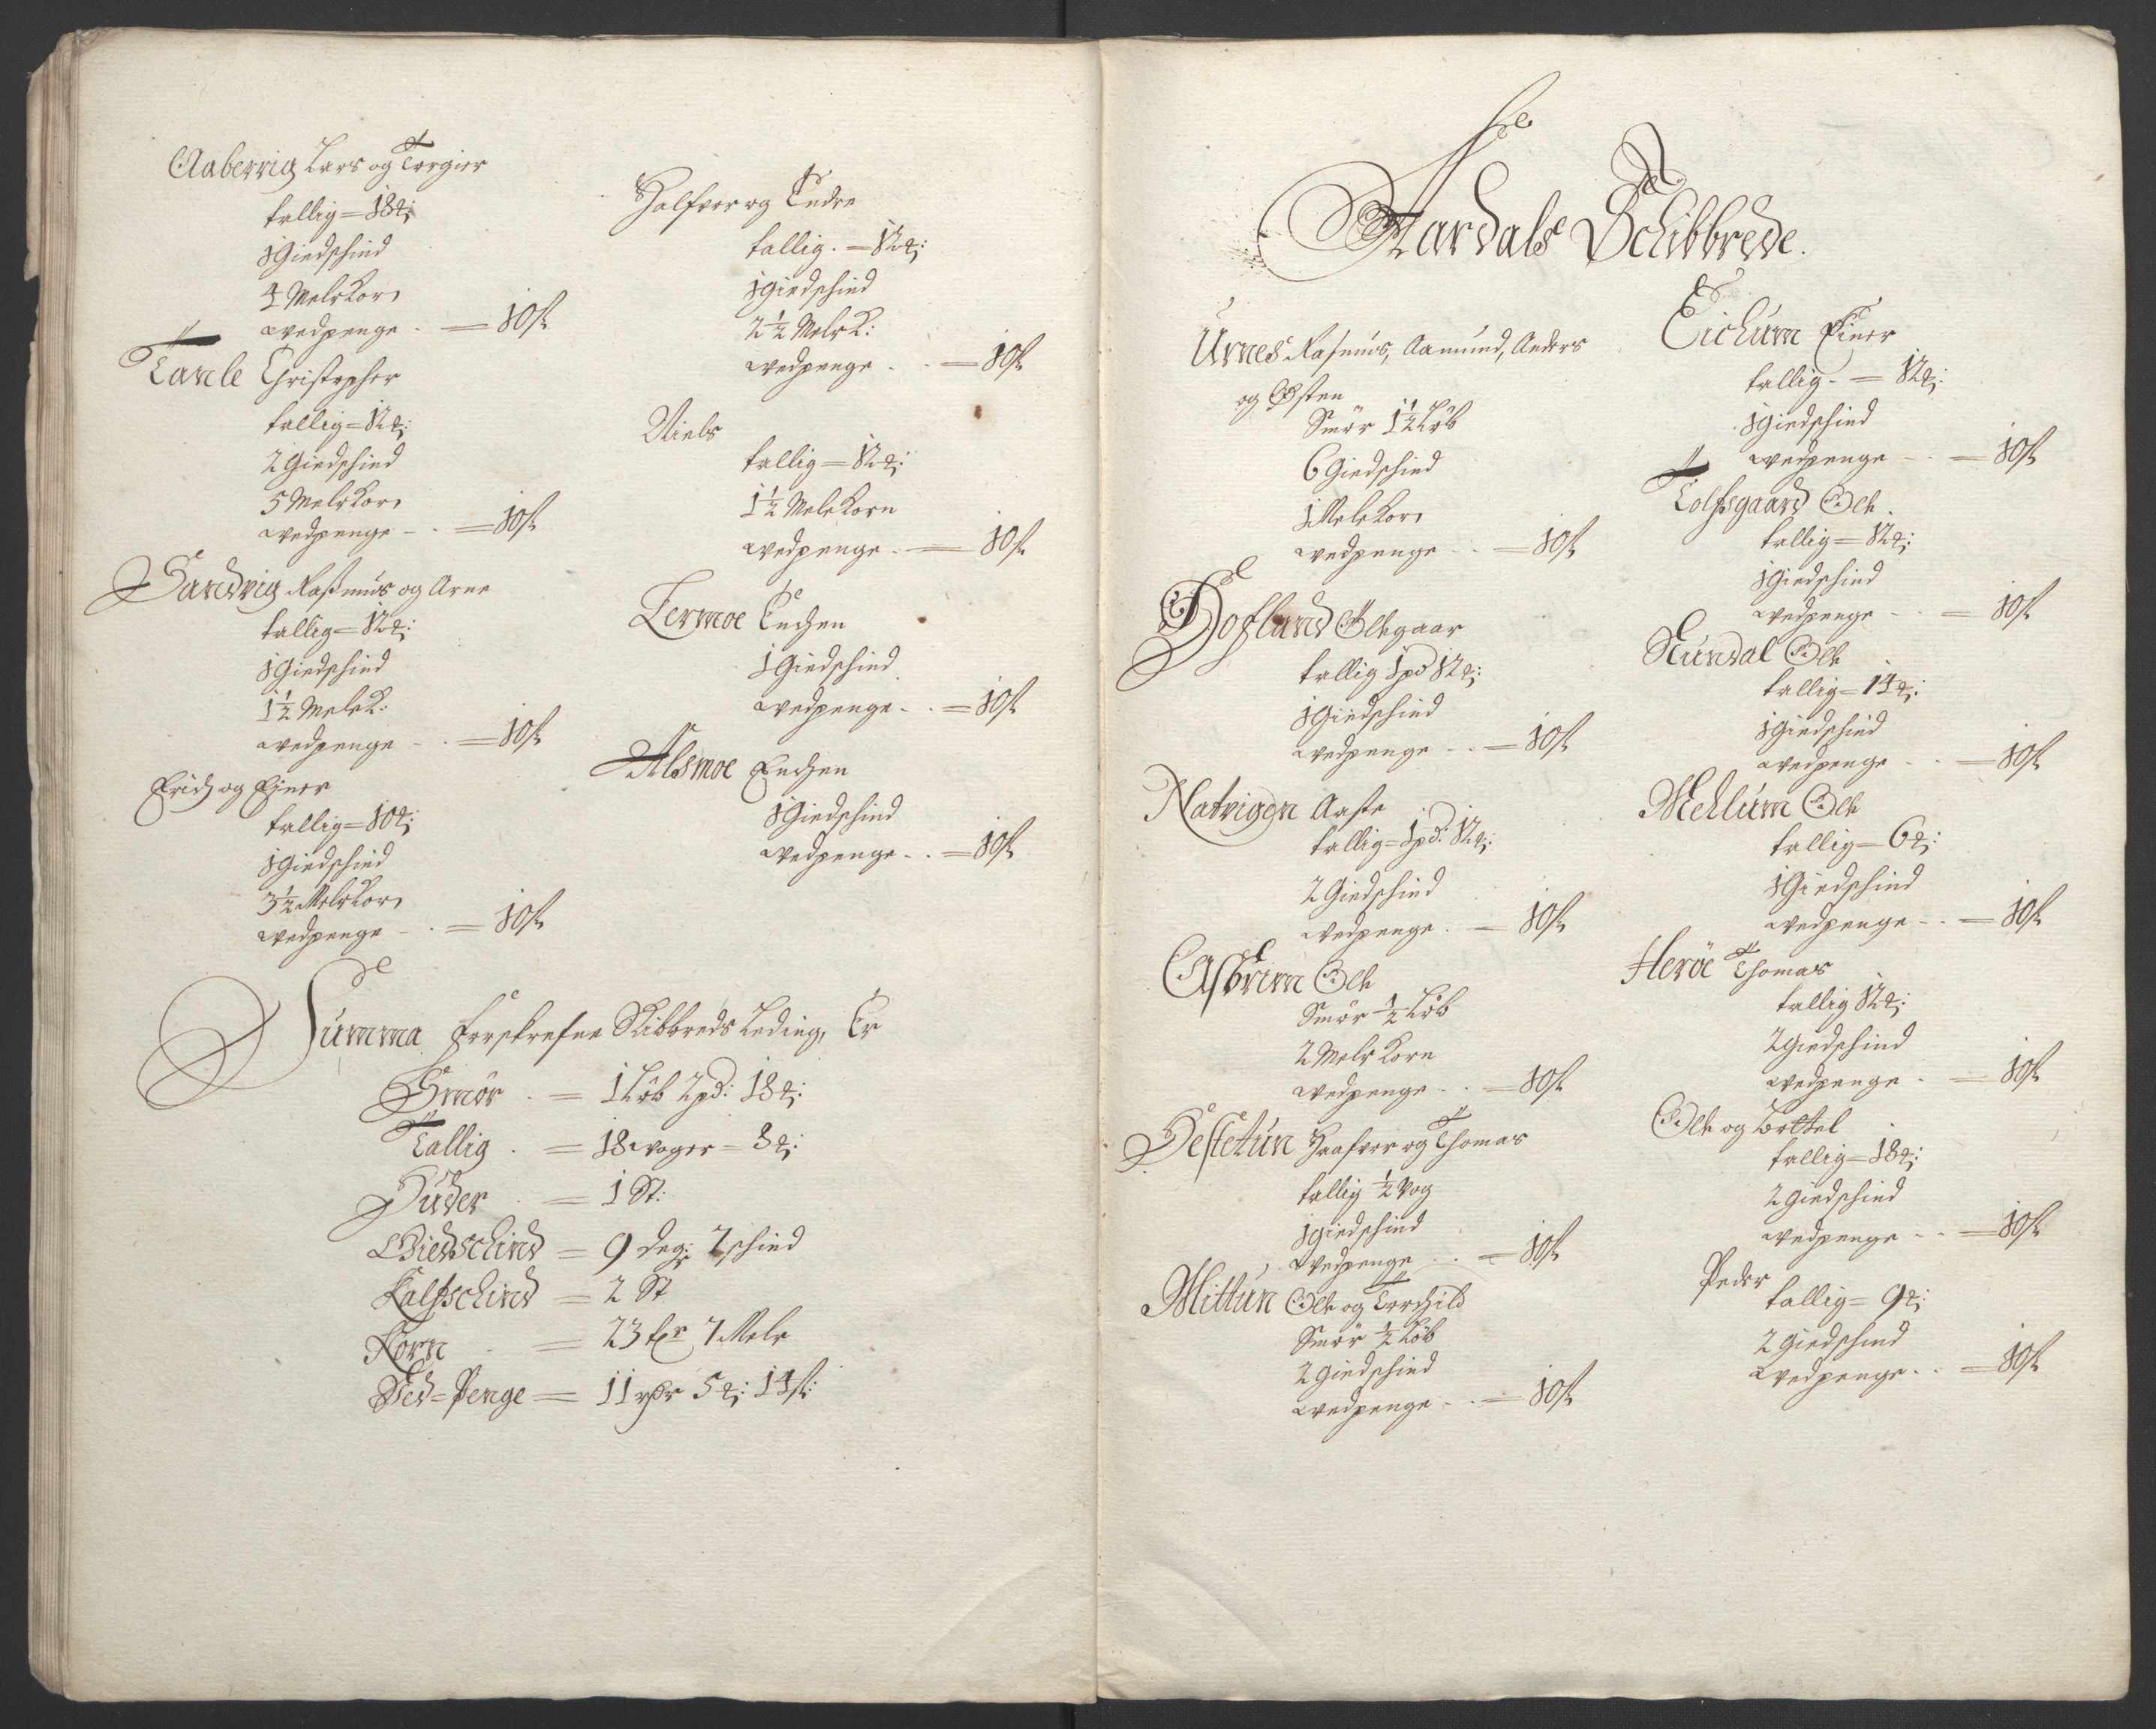 Aabervig Lars og Torgier
tallig = 18 ℔:
1 Giedschind
4 Meler Korn
wedpenge - = 10 ß
Tanle Christopher
tallig = 12 ℔:
2 Giedschind
5 Meler Korn
wedpenge - . = 10 ß
Sandvig Rasmus og Arne
tallig = 12 ℔:
1 Giedschind
1½ Mele K:
wedpenge - . = 10 ß
Erich og Ejner
tallig = 10 ℔:
1 Giedschind
3½ Meler Korn
wedpenge - . = 10 ß
Halfvor og Endre
tallig . = 12 ℔:
1 Giedschind
2½ Meler K:
wedpenge . . = 10 ß
Niels
tallig = 12 ℔:
1½ Mele Korn
wedpenge . = 10 ß
Lermoe Enchen
1 Giedschind
wedpenge - . = 10 ß
Alsmoe Enchen
1 Giedschind
wedpenge - . = 10 ß
Summa forskrefne Skibbreds Leding, Er
Smör . = 1 Löb 2 pd: 18 ℔:
Tallig . = 18 woger = 3 ℔:
Huder . = 1 St:
Giedschind = 9 deger 7 schind
Kalfschind = 2 St
Korn - = 23 tr 7 Meler
Ved=Penge = 11 rdr 5 ℔: 14 ß:
Aardals Schibbrede.
Urnes Rasmus, Aamund, Anders
og Østen
Smör 1½ Löb
6 Giedschind
1 Mele Korn
wedpenge - . = 10 ß
Hofland Olle gaar
tallig 1 pd 12 ℔:
1 Giedschind
wedpenge - . = 10 ß
Natvigen Aaste
tallig = 1 pd: 12 ℔:
2 Giedschind
wedpenge . = 10 ß
Asbrim Ole
Smör ½ Löb
2 Meler Korn
wedpenge - . = 10 ß
Hestetun Haafvor og Thomas
tallig ½ Vog
1 giedschind
wedpenge . = 10 ß
Mittun Ole og Torchild
Smör ½ Löb
2 giedschind
wedpenge - . = 10 ß
Eichum Einer
tallig - = 12 ℔:
1 Giedschind
wedpenge - . = 10 ß
Tolfsgaard Ole.
tallig = 12 ℔:
1 Giedschind
wedpenge - . = 10 ß
Nundal Ole
tallig = 14 ℔:
1 Giedschind
wedpenge . . = 10 ß
Mellum Ole
tallig = 6 ℔:
1 Giedschind
wedpenge - . = 10 ß
Heröe Thomas
tallig 12 ℔:
2 Giedschind
wedpenge . = 10 ß
Ole og Bottel
tallig = 18 ℔:
2 Giedschind
wedpenge - . = 10 ß
Peder
tallig = 9 ℔:
2 Giedschind
wedpenge . . = 10 ß